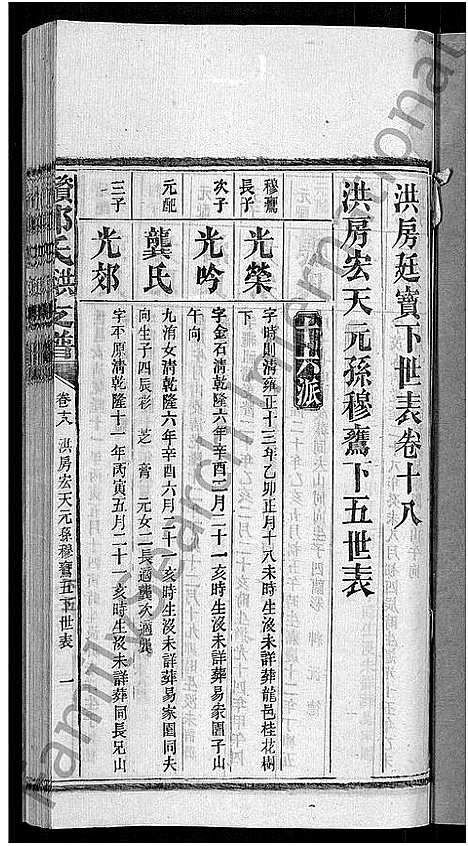 洪房廷寶下世表卷十八
洪房宏天元孫穆騫下五世表
穆騫長子
光榮
字時則清雍正十三年乙卯正月十八未時生沒未詳葬龍邑桂花樹下
次子
光吟
字金石清乾隆六年辛酉二月二十一亥時生沒未詳葬易家園子山午向
元配
龔氏
九洧女清乾隆六年辛酉六月二十一亥時生沒未詳葬易家園同夫向生子四辰彩 芝 膏 元女二長適龔次適張
三子
光郊
字不原清乾隆十一年丙寅五月二十一亥時生沒未詳葬同長兄山
資邵氏洪之譜
卷十八
洪房宏天元孫穆騫五下世表
一
familysearch International